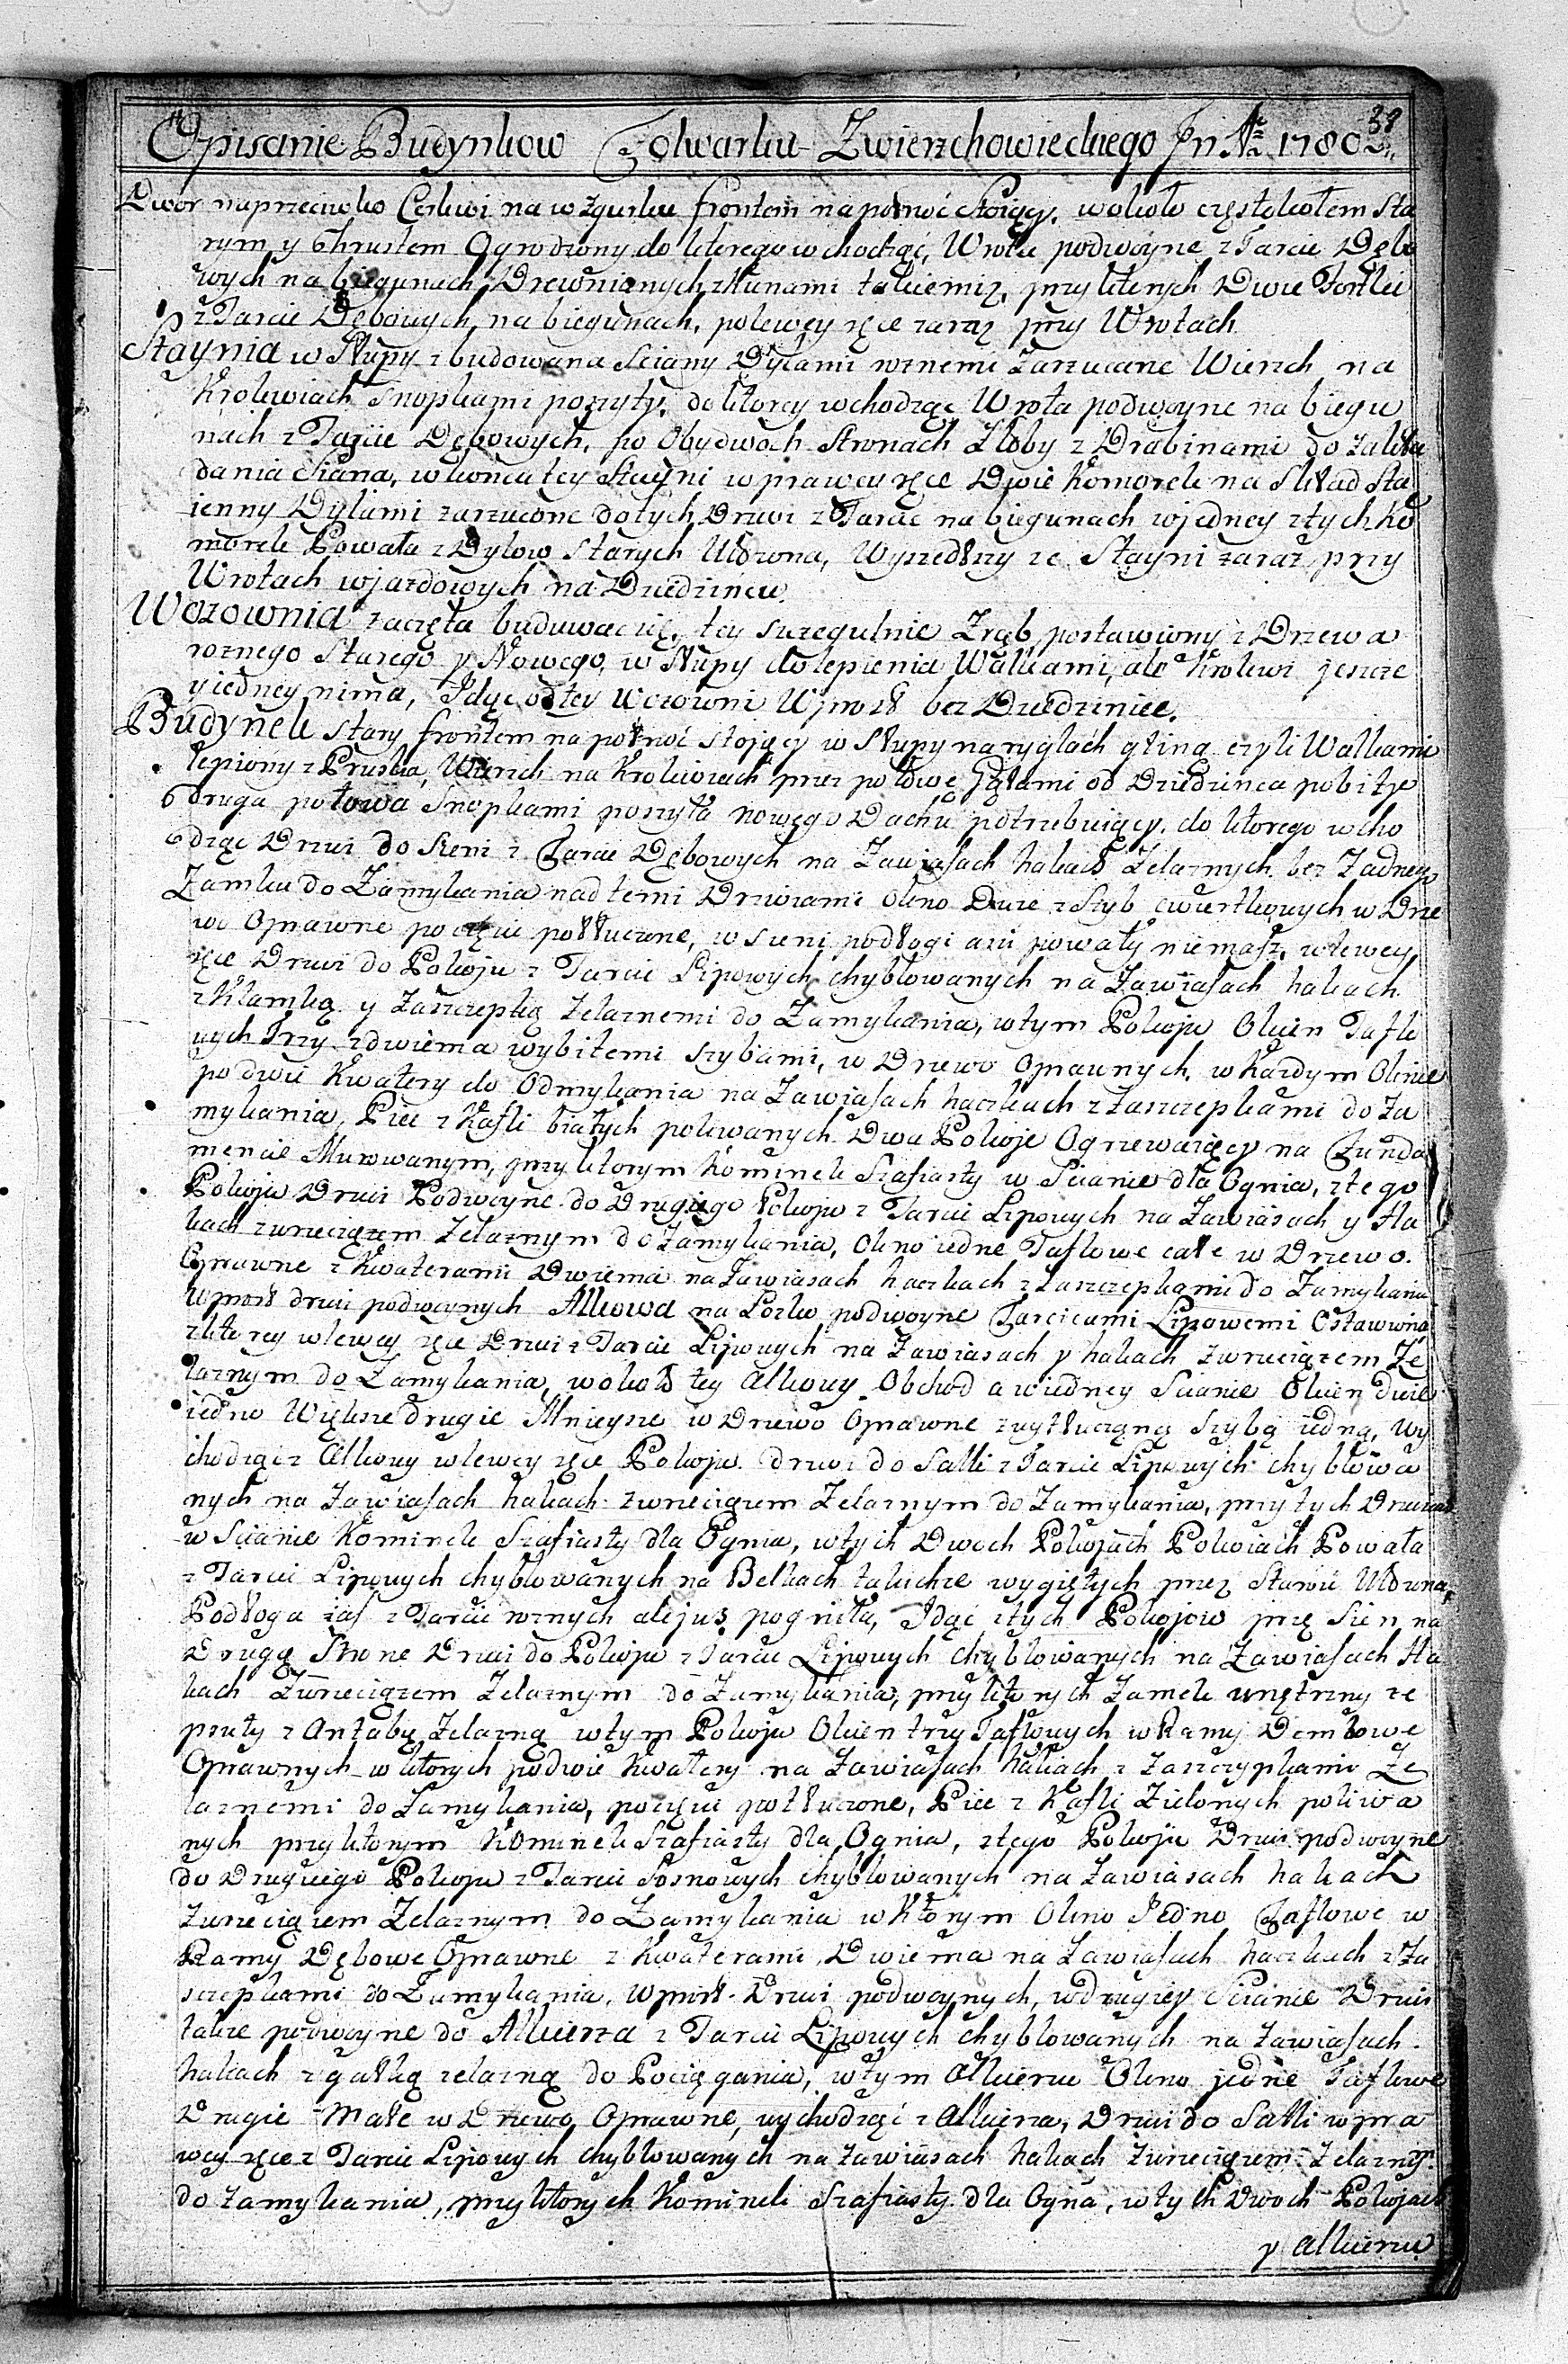 Opisanie Budynkow Folwarku Zwierzchowieckiego In Ao 1780 38
Dwor naprzeciwko Cerkwi na wzgurku frontem na połnoć Stoiący, wokoło częstokołem Sta
rym y Chrustem Ogrodzony do ktorego wchodząć, Wrota podwoyne z Tarcic Dębo
wych na biegunach Drewnianych z kunami takiemiz, przy ktorych Dwie Fortki
z Tarcic Dębowych na biegunach, polewey ręce zaraz przy Wrotach
Staynia w Słupy zbudowana Sciany Dylami roznemi Zarzucane Wierzch na
Krokwiach Snopkami poszyty, do ktorey wchodząc Wrota podwoyne na biegu
nach z Tarcic Dębowych, po Obydwoch Stronach Złoby z Drabinami do zakła
dania Siana, w koncu tey Stayni w prawey ręce Dwie Komorek na Skład Sta
ienny Dylami zarzucone do tych Drzwi z Tarcic na biegunach w jedney z tych Ko
morek Powała z Dylow Starych Ułozona, Wyszedszy ze Stayni zaraz przy
Wrotach wjazdowych na Dziedzincu
Wozownia zaczęta budowac się, tey szczegulnie Zrąb postawiony z Drzewa
roznego Starego y Nowego w Słupy do lepienia Walkami, ale Krokwi jeszcze
y iedney nima, Idąc od tey Wozowni Wprost bez Dziedziniec
Budynek Stary frontem na połnoć stojący w Słupy na ryglach gliną czyli Walkami
lepiony z Pruska, Wierzch na Krokwiach przez połowę Gątami od Dziedzinca pobity
druga połowa Snopkami poszyta nowego Dachu potrzebuiący, do ktorego wcho
dząc Drzwi do Sieni z Tarcic Dębowych na Zawiasach hakach Zelaznych bez Zadnego
Zamku do Zamykania nad temi Drzwiami Okno Duze z Szyb cwiertkowych w Drze
wo Oprawne po częsci potłuczone, w sieni podłogi ani powały niemasz, w lewey
ręce Drzwi do Pokoju z Tarcic Lipowych chyblowanych na Zawiasach hakach
z Klamką y Zaszczepką Zelaznemi do Zamykania, w tym Pokoju Okien Taflo
wych Trzy z dwiema wybitemi szybami, w Drzewo Oprawnych, w Kazdym Oknie
po dwie Kwatery do Odmykania na Zawiasach haczkach z Zaszczepkami do Za
mykania, Piec z Kafli białych polewanych Dwa Pokoje Ogrzewaiący na Funda
mencie Murowanym, przy ktorym Kominek Szafiasty w Scianie dla Ognia, z tego
Pokoju Drzwi Podwoyne do Drugiego Pokoju z Tarcic Lipowych na Zawiasach y Ha
kach z wrzeciązem Zelaznym do Zamykania, Okno iedne Taflowe całe w Drzewo
Oprawne z Kwaterami Dwiema na Zawiasach haczkach z Zaszczepkami do Zamykania
Wprost drzwi podwoynych Alkowa na Łozko podwoyne Tarcicami Lipowemi Ostawiona
z ktorey w lewey ręce Drzwi z Tarcic Lipowych na Zawiasach y hakach z wrzeciązem Ze
laznym do Zamykania, wokoło tey Alkowy Obchod a w iedney Scianie Okien dwie
iedno Większe drugie Mnieysze w Drzewo Oprawne z wytłuczoną szybą iedną, wy
chodząc z Alkowy w lewey ręce Pokoju drzwi do Salki z Tarcic Lipowych chyblowa
nych na Zawiasach hakach z wrzeciązem Zelaznym do Zamykania, przy tych Drzwiach
w Scianie Kominek Szafiasty dla Ognia, w tych Dwoch Pokojach Pokoiach Powała
z Tarcic Lipowych chyblowanych na Belkach takichze wygiętych przez Starość Ułozona,
Podłoga zaś z Tarcic roznych ale juz pogniła, Idąc z tych Pokojow prze Sien na
Drugą Strone Drzwi do Pokoju z Tarcic Lipowych chyblowanych na Zawiasach Ha
kach Zwrzeciązem Zelaznym do Zamykania, przy ktorych Zamek wnętrzny ze
psuty z Antabą Zelazną w tym Pokoju Okien trzy Taflowych w Ramy Dembowe
Oprawnych w ktorych podwie Kwatery na Zawiasach hakach z Zaszczypkami Ze
laznemi do Zamykania, po częsci potłuczone, Piec z Kafli Zielonych poliwa
nych przy ktorym Kominek Szafiasty dla Ognia, z tego Pokoju Drzwi podwoyne
do Drugiego Pokoju z Tarcic Sosnowych chyblowanych na Zawiasach hakach
Zwrzeciązem Zelaznym do Zamykania w Ktorym Okno Jedno Taflowe w
Ramy Dębowe Oprawne z Kwaterami Dwiema na Zawiasach haczkach z Za
szczepkami do Zamykania, Wprost Drzwi podwoynych, w drugiey Scianie Drzwi
takze podwoyne do Alkierza z Tarcic Lipowych chyblowanych na Zawiasach
hakach z gałką zelazną do Pociągania, w tym Alkierzu Okno jedne Taflowe
Drugie Małe w Drzewo Oprawne, wychodząć z Alkierza, Drzwi do Salki w pra
wey ręce z Tarcic Lipowych chyblowanych na zawiasach hakach Zwrzeciązem Zelaznym
do Zamykania, przy ktorych Kominek Szafiasty dla Ogna, w tych Dwoch Pokojach
y Alkierzu